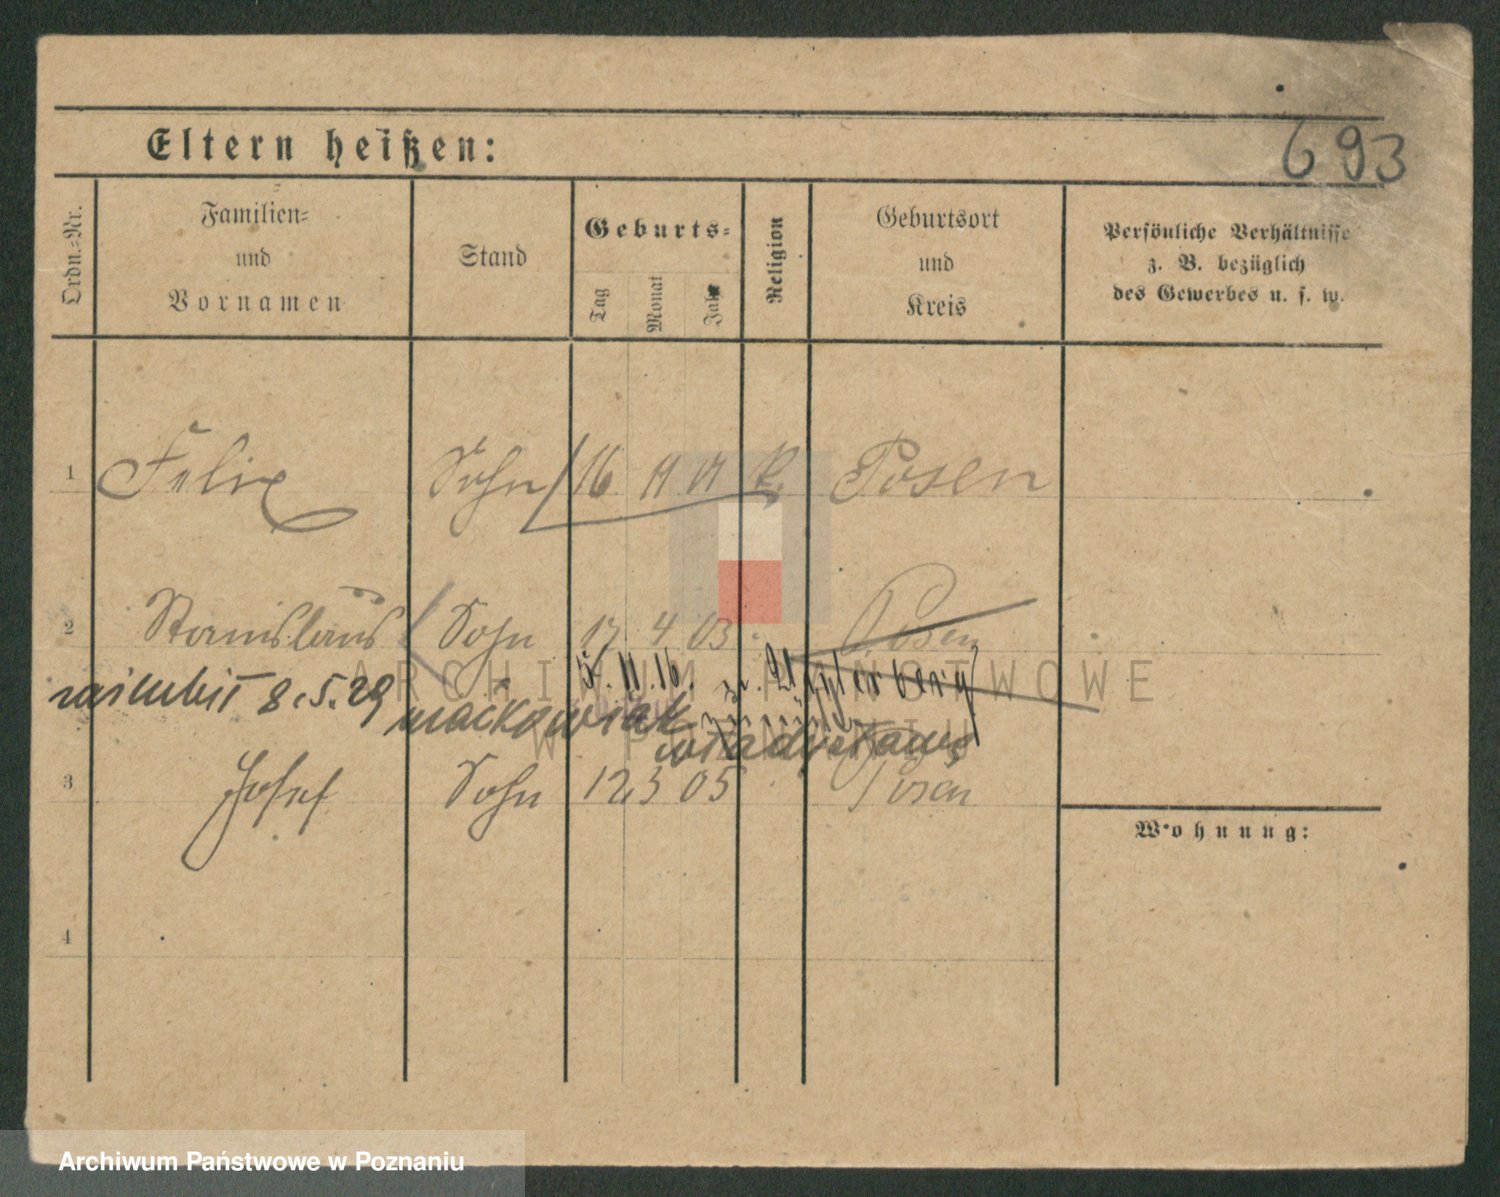 693
Eltern heißen:
Ordn.-Nr.
Familien-
und
Vornamen
Stand
Geburts-
Tag
Monat
Jahr
Religion
Geburtsort
und
Kreis
Persönliche Verhältnisse
z. B. bezüglich
des Gewerbes u. s. w.
1 Felix Sohn 16 11 01 k. Posen
2 Stanislaus Sohn 17 4 03 Posen
8.5.29 11.16.
Maćkowiak
Władysława
3 Josef Sohn 12 3 05 Posen
Wohnung:
4
ARCHIWUM PAŃSTWOWE
W POZNANIU
Archiwum Państwowe w Poznaniu